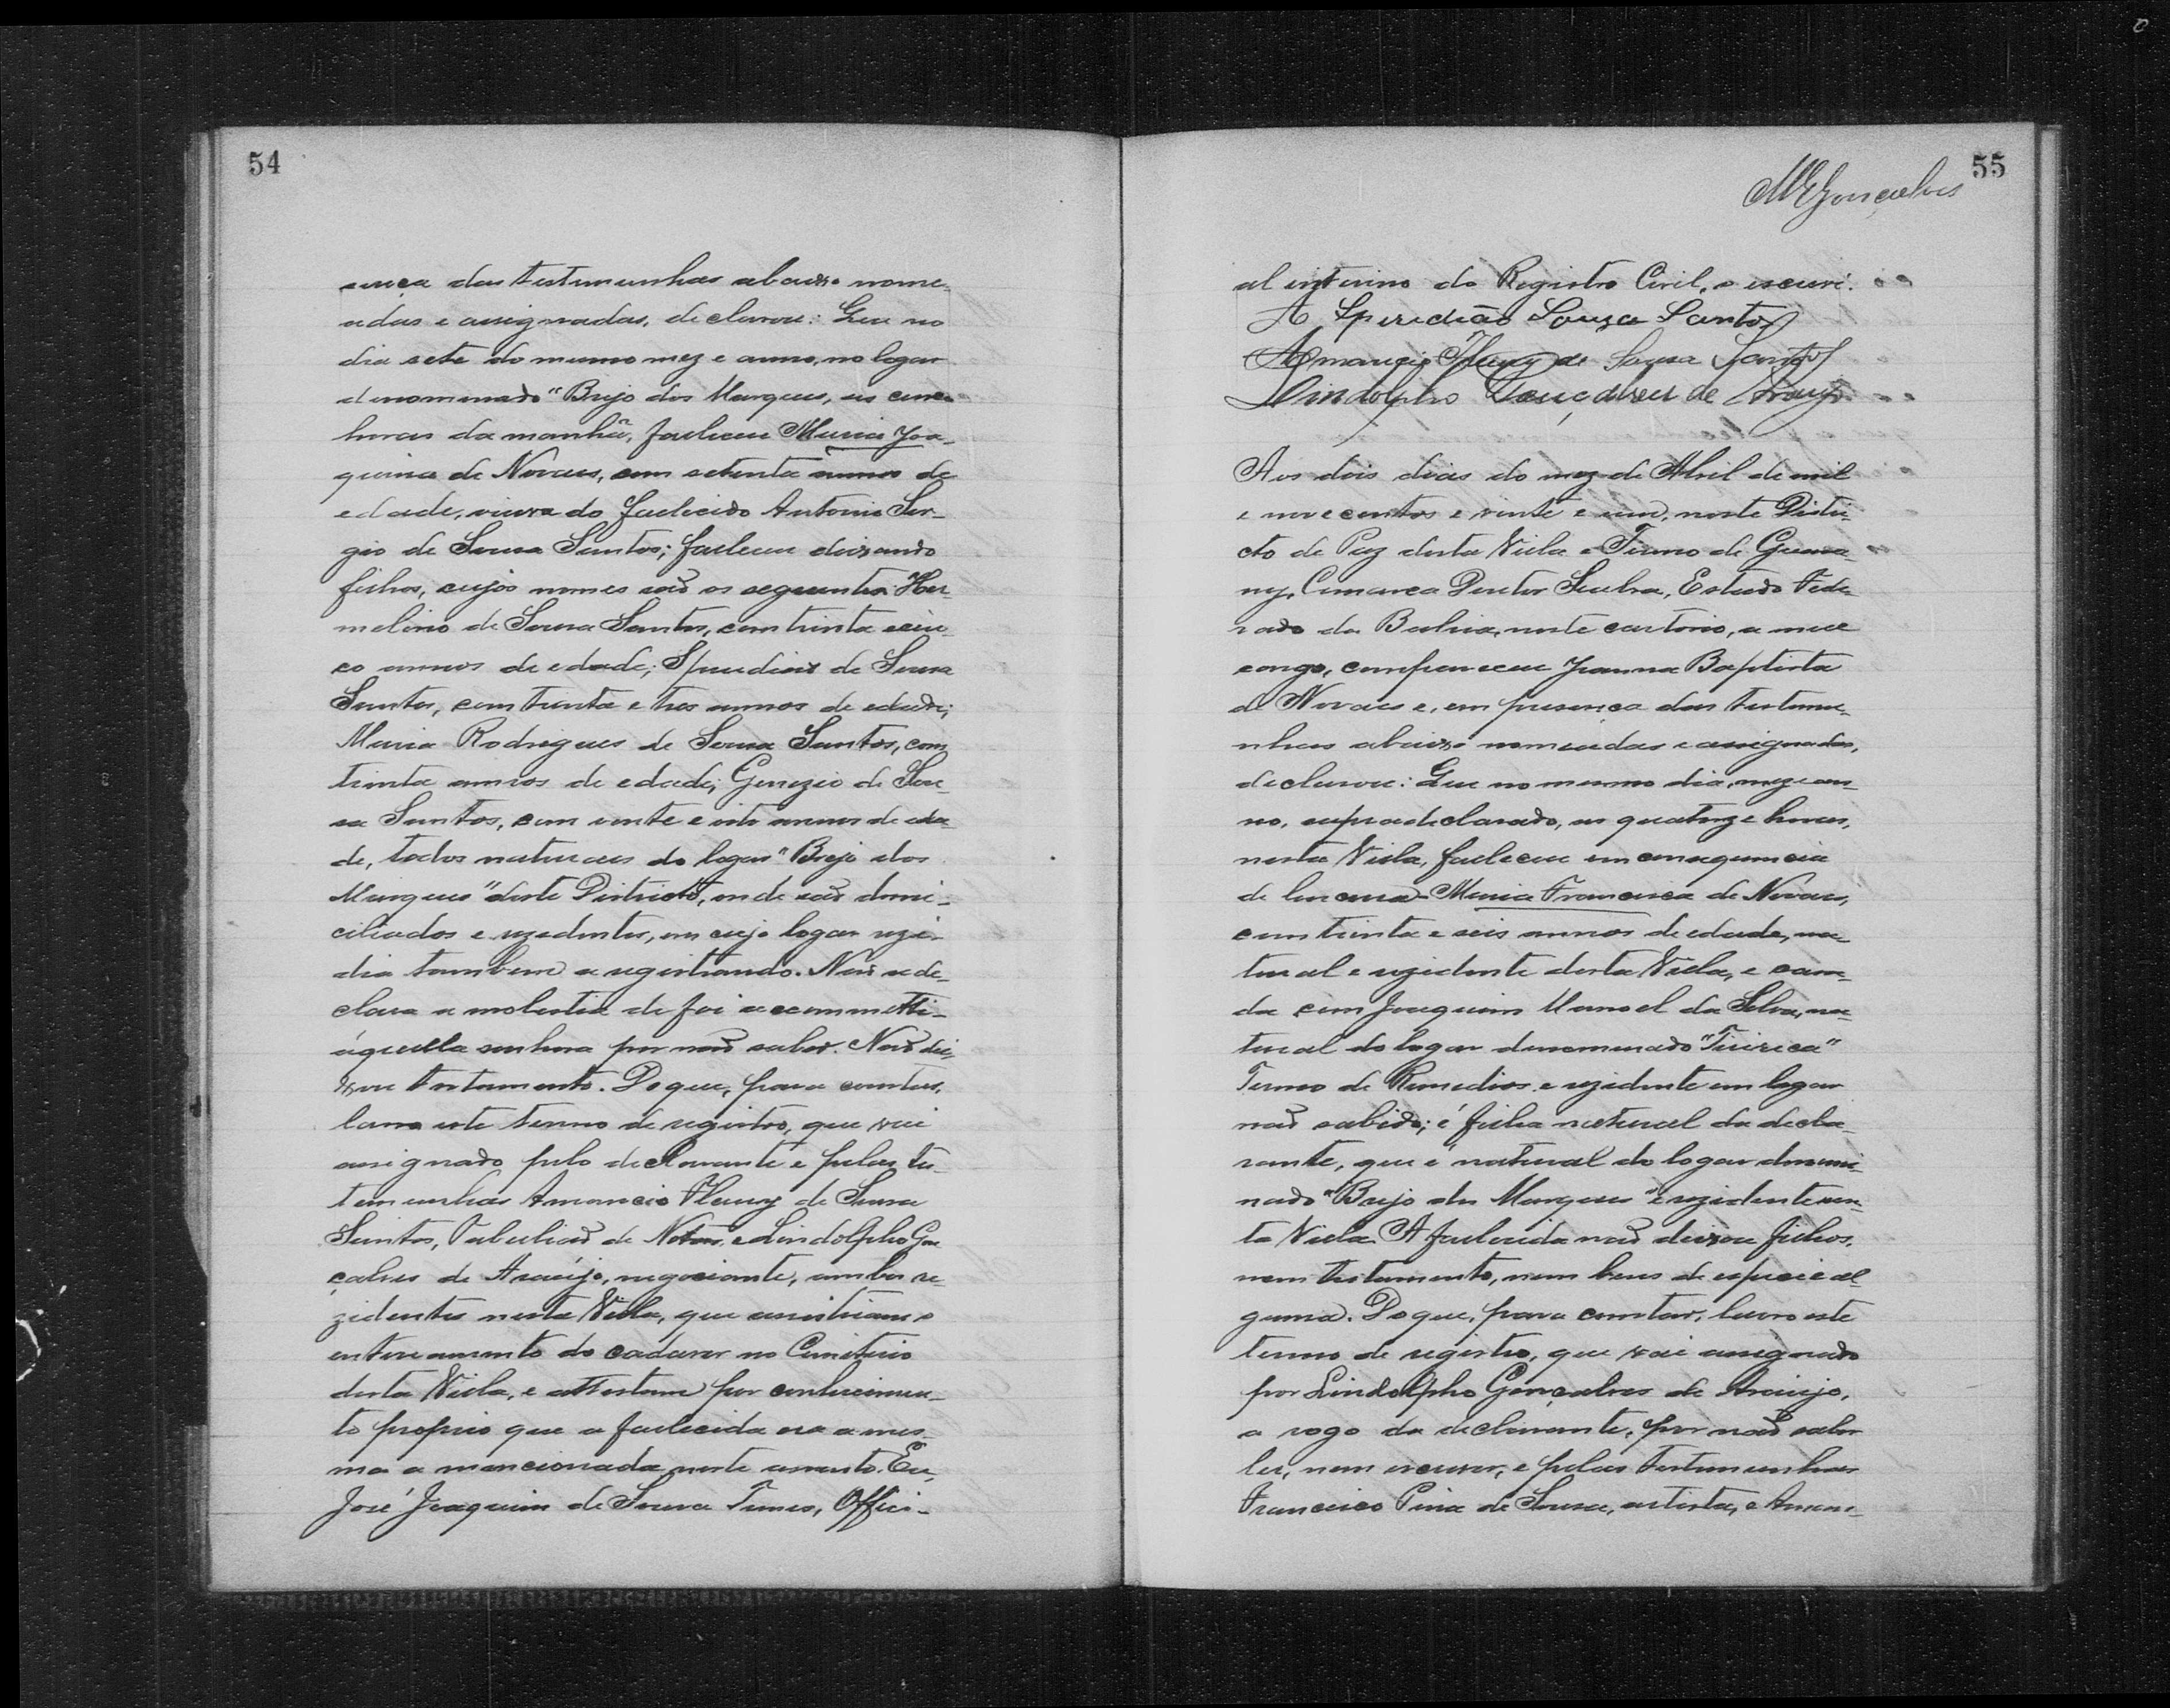 54
sença das testemunhas abaixo nome-
adas e assignadas, declarou: Que no
dia sete do mesmo mez e anno, no logar
denominado "Brejo dos Marques, as cinco
horas da manhã, falleceu Maria Joa-
quina de Novaes, com setenta annos de
edade, viuva do fallecido Antonio Ser-
gio de Sousa Santos; falleceu deixando
filhos, cujos nomes são os seguintes: Her-
melino de Sousa Santos, com trinta e cin-
co annos de edade; Speridião de Sousa
Santos, com trinta e tres annos de edade;
Maria Rodrigues de Sousa Santos, com
trinta annos de edade; Genezio de Sou-
sa Santos, com vinte e oito annos de eda-
de, todos naturaes do logar "Brejo dos
Marques" deste Districto, onde são domi-
ciliados e rezidentes, em cujo logar rezi-
dia tambem a registrando. Não se de-
clara a molestia de foi accommetti-
áquella senhora por não saber. Não dei-
xou testamento. Do que, para constar,
lavro este termo de registro, que vai
assignado pelo declarante e pelas tes-
temunhas Amancio Fleury de Sousa
Santos, Tabellião de Notas, e Lindolpho Gon
çalves de Araújo, negociante, ambos re-
zidentes nesta Villa, que assistiram o
enterramento do cadaver no Cemiterio
desta Villa, e attestam por conhecimen-
to proprio que a fallecida era a mes-
ma a mencionada neste assento. Eu,
José Joaquim de Sousa Tunes, Offici-
55
MEGonçalves
al interino do Registro Civil, o escrevi.
A Speredião Souza Santos
Amancio Fleury de Sousa Santos
Lindolpho Gonçalves de Araujo
Aos dois dias do mez de Abril de mil
e novecentos e vinte e um, neste Distri-
cto de Paz desta Villa e Termo de Guara-
ny, Comarca Doutor Seabra, Estado Fede-
rado da Bahia, neste cartorio, a meu
cargo, compareceu Joanna Baptista
de Novaes e, em presença das testemu-
nhas abaixo nomeadas e assignadas,
declarou: Que no mesmo dia, mez e an-
no, supra declarado, as quatorze horas,
nesta Villa, falleceu em consequencia
de loucura Maria Francisca de Novaes,
com trinta e seis annos de edade, na-
tural e rezidente desta Villa, e casa-
da com Joaquim Manoel da Silva, na-
tural do logar denominado "Tiririca"
Termo de Remedios e rezidente em logar
não sabido; é filha natural da decla-
rante, que é natural do logar denomi-
nado "Brejo dos Marques" e rezidente nes-
ta Villa. A fallecida não deixou filhos,
nem testamento, nem bens de especie al-
guma. Do que, para constar, lavro este
termo de registro, que vai assignado
por Lindolpho Gonçalves de Araujo,
a rogo da declarante, por não saber
ler, nem escrever, e pelas testemunhas
Francisco Pina de Sousa, artista, e Aman-